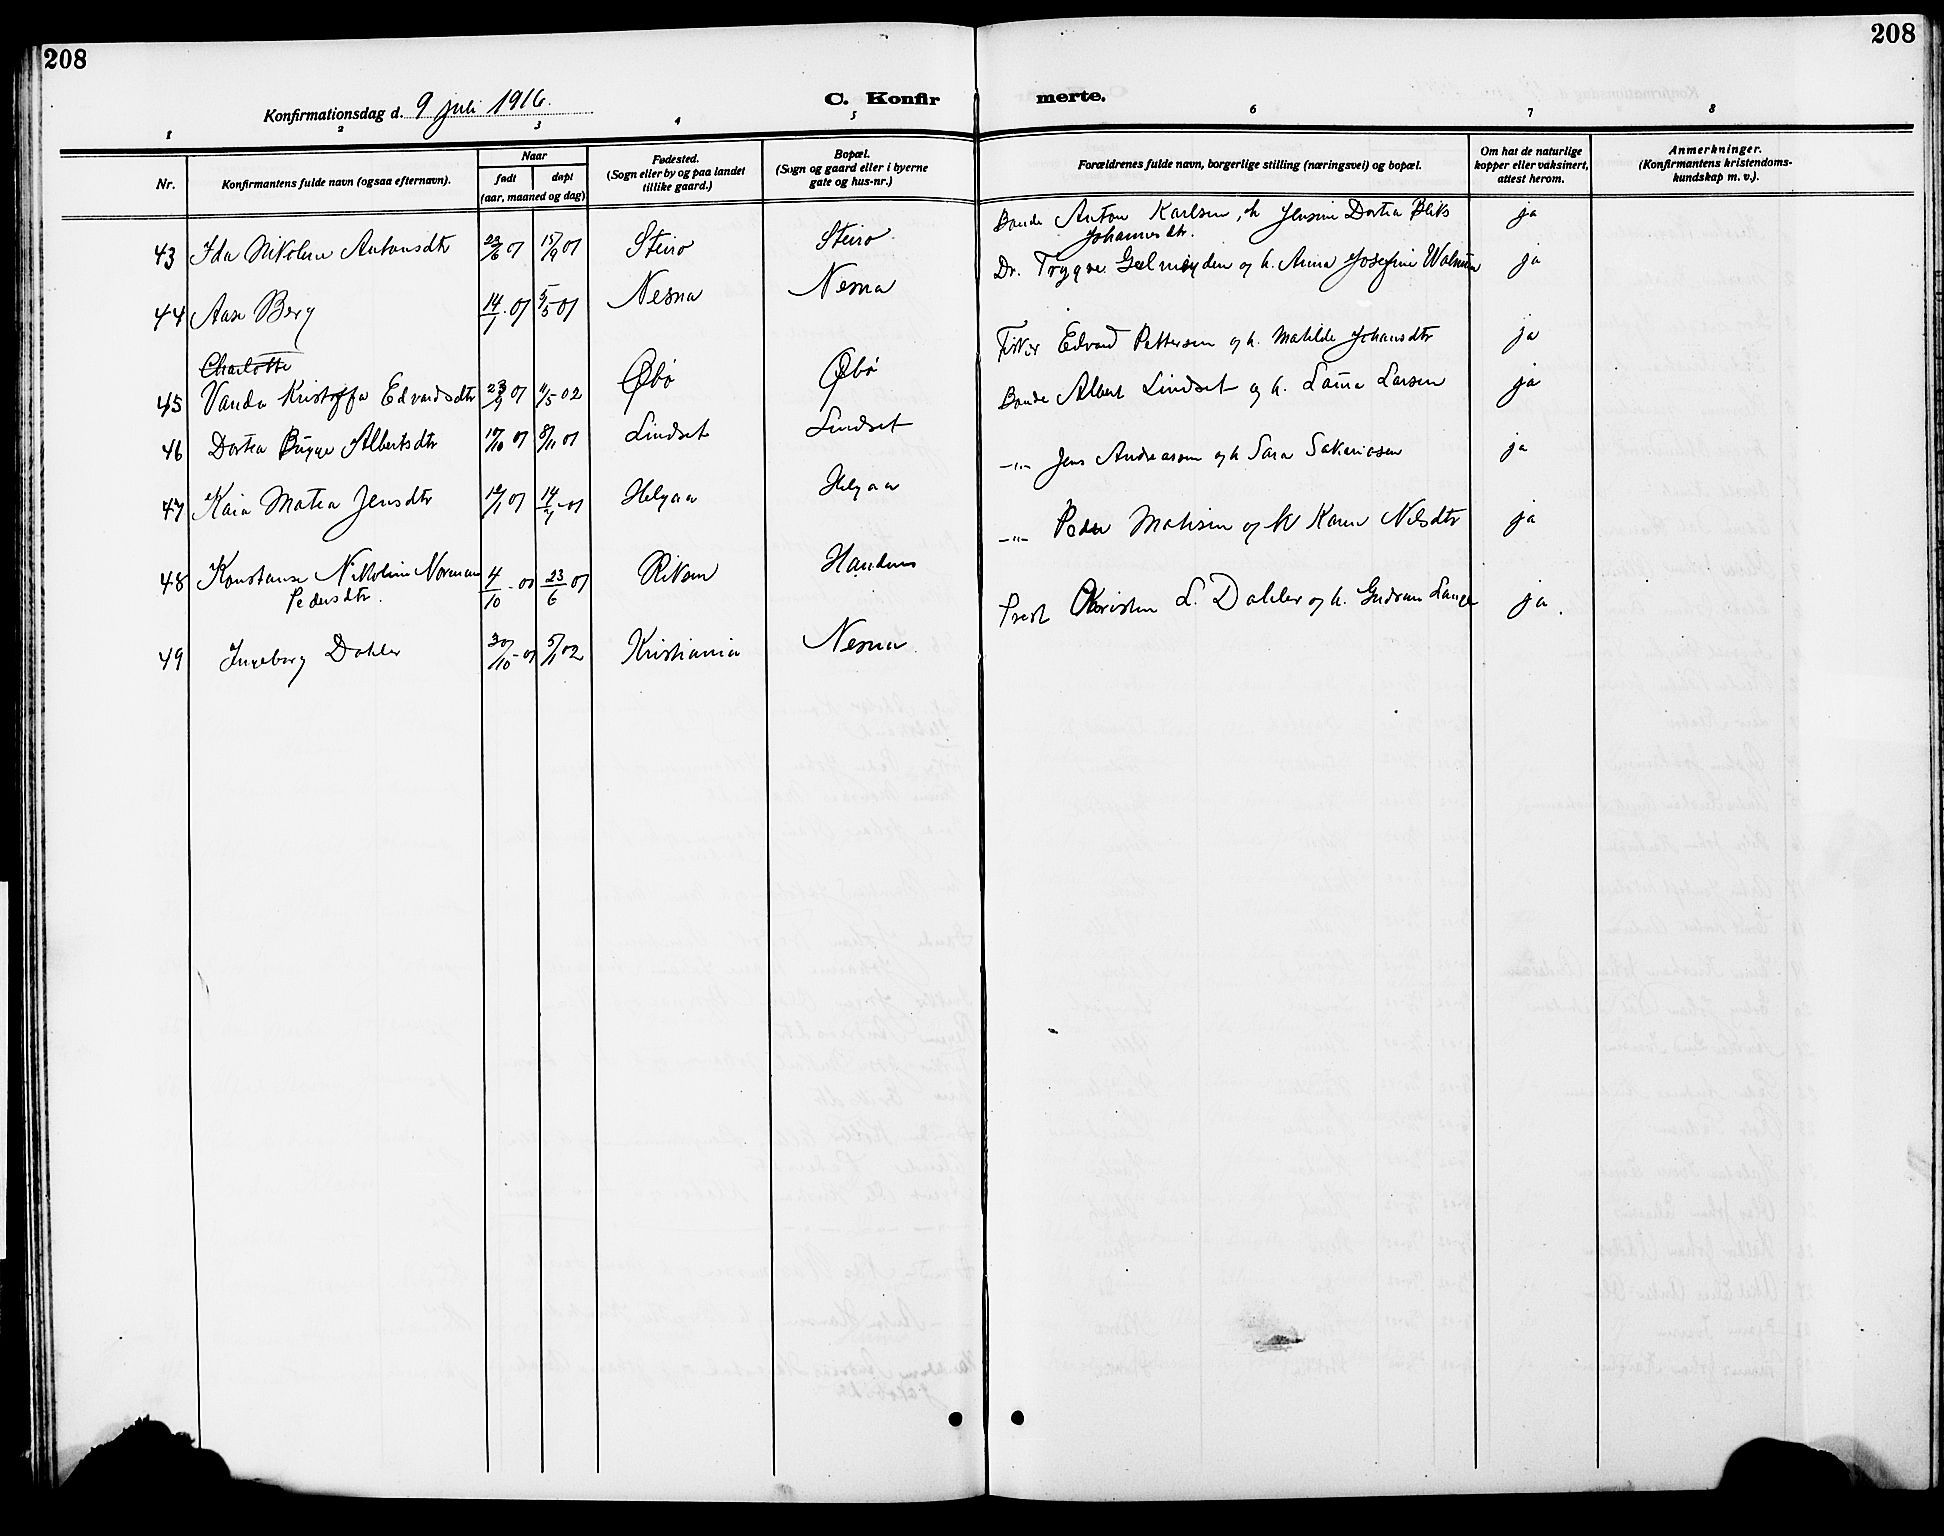 208
208
Konfirmationsdag d. 9 juli 1916.
C. Konfirmerte.
1 2 3 4 5 6 7 8
Nr.
Konfirmantens fulde navn (ogsaa efternavn).
Naar
født
døpt
(aar, maaned og dag)
Fødested.
(Sogn eller by og paa landet
tillike gaard.)
Bopæl.
(Sogn og gaard eller i byerne
gate og hus-nr.)
Forældrenes fulde navn, borgerlige stilling (næringsvei) og bopæl.
Om hat de naturlige
kopper eller vaksinert,
attest herom.
Anmerkninger.
(Konfirmantens kristendoms-
kundskap m. v.).
43 Ida Nikoline Antonsdtr 15/9 01 Steiro Steiro Bonde Anton Karlsen, h Jensine Dortea
Johannesdtr. ja
44 Aase Berg 14/1 01 5/5 01 Nesna Nesna Dr. Trygve Gulmeyden og h. Anna Josefine ja
Charlotte
45 Vanda Kristoffa Edvardsdtr 23/9 01 11/5 02 Øbø Øbø Fisker Edvard Pettersen og h. Matilde Johansdtr ja
46 Dortea Bugge Albertsdtr 10/10 01 8/11 01 Lindset Lindset Bonde Albert Lindset og h. Laura Larsen ja
47 Kaia Matea Jensdtr 14/7 01 Helgaa Helgaa -"- Jens Andreassen og h Sara Sakariasen ja
48 Konstanse Nikoline Norman
Pedersdtr. 4/10 - 00 23/6 01 Handnes -"- Peder Matisen og h Karen Nilsdtr ja
49 Ingeborg Dahler 30/10 - 01 5/1 02 Kristiania Nesna Prest Kristen L. Dahler og h. Gudrun Lange ja.